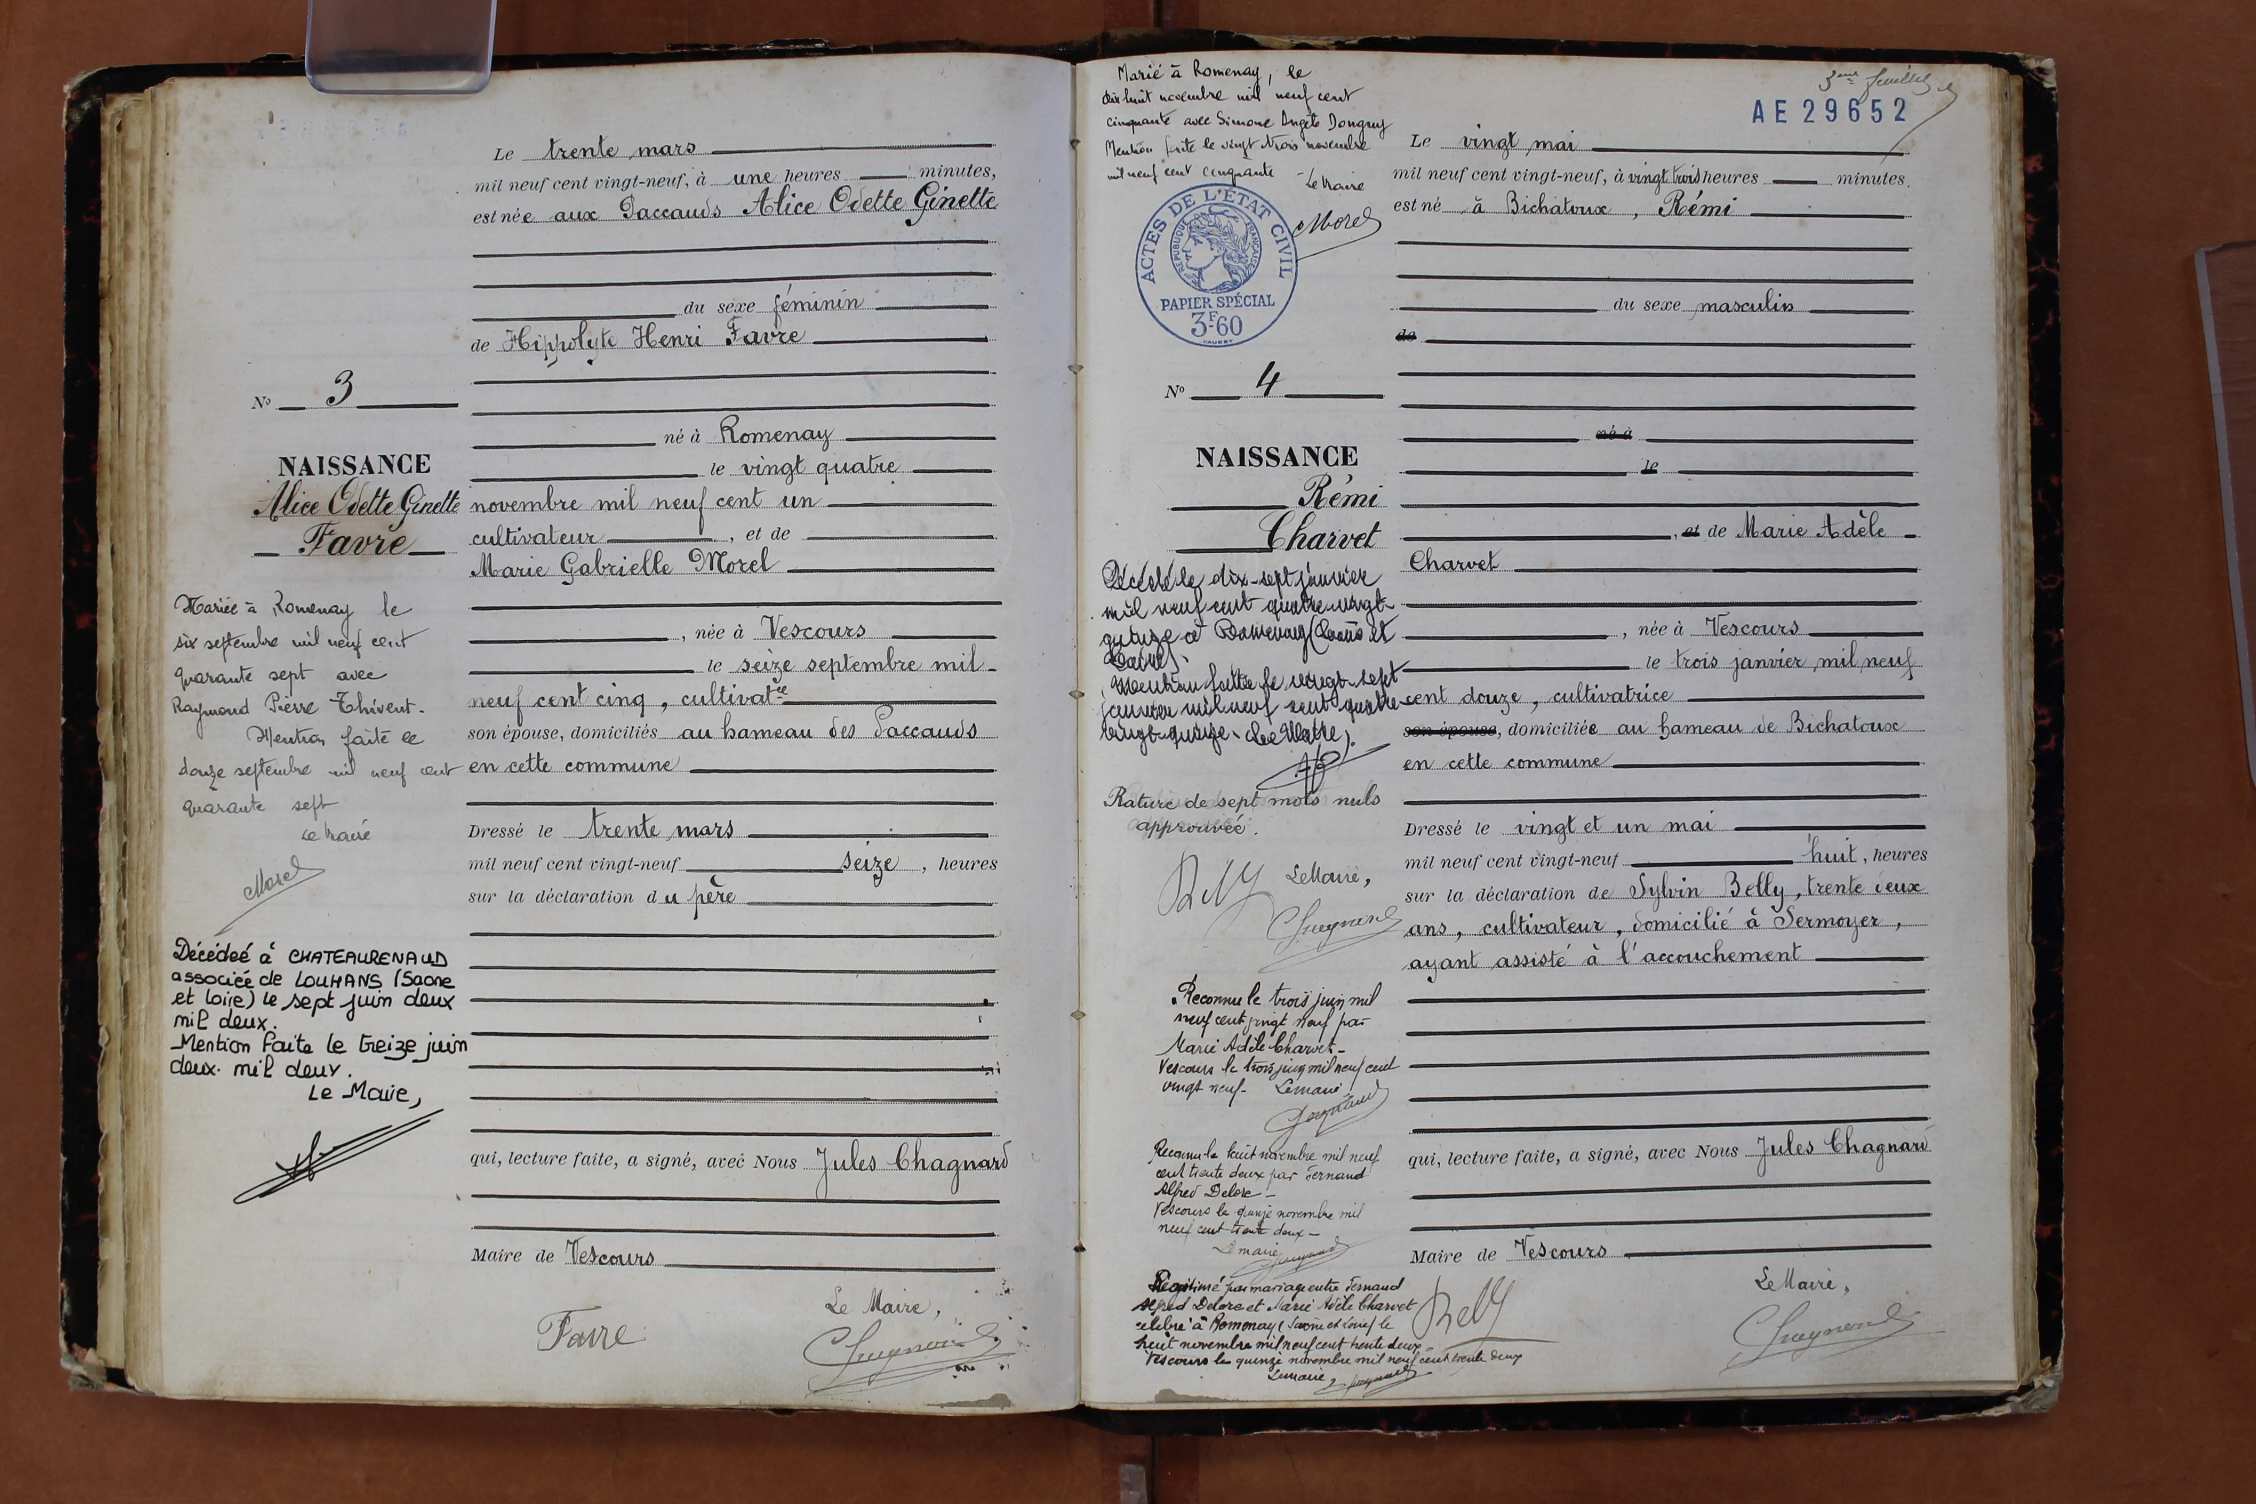 Le trente mars
mil neuf cent vingt-neuf, à une heures minutes,
est née aux Paccauds Alice Odette Ginette
du sexe féminin
de Hippolyte Henri Favre
né à Romenay
le vingt quatre
novembre mil neuf cent un
cultivateur, et de
Marie Gabrielle Morel
, née à Vescours
le seize septembre mil
neuf cent cinq, cultivatce
son épouse, domiciliés au hameau des Paccauds
en cette commune
Dressé le trente mars
mil neuf cent vingt-neuf seize, heures
sur la déclaration du père
qui, lecture faite, a signé, avec Nous Jules Chagnard
Maire de Vescours
Le Maire,
Favre
No 3
NAISSANCE
Alice Odette Ginette
Favre
Mariée à Romenay le
six septembre mil neuf cent
quarante sept avec
Raymond Pierre Thivent.
Mention faite le
douze septembre mil neuf cent
quarante sept
Le Maire
Morel
Décédeé à CHATEAURENAUD
associée de LOUHANS (Saone
et Loire) le sept juin deux
mil deux.
Mention faite le treize juin
deux mil deux.
Le Maire,
3eme feuillet
AE 29652
Marié à Romenay, le
dix huit novembre mil neuf cent
cinquante avec Simone Angèle
Mention faite le vingt trois novembre
mil neuf cent cinquante Le Maire
Morel
ACTES DE L'ÉTAT CIVIL
RÉPUBLIQUE FRANÇAISE
PAPIER SPÉCIAL
3F60
No 4
NAISSANCE
Rémi
Charvet
Décédé le dix-sept janvier
mil neuf cent quatre-vingt-
quinze à Romenay (Saône et
Loire).
Mention faite le vingt-sept
janvier mil neuf cent quatre
vingt-quinze. Le Maire,
Rature de sept mots nuls
approuvée.
Belly Le Maire,
Reconnu le trois juin mil
neuf cent vingt neuf par
Marie Adèle Charvet
Vescours le trois juin mil neuf cent
vingt neuf. Le maire
Reconnu le huit novembre mil neuf
cent trente deux par Fernand
Alfred Delore
Vescours le quinze novembre mil
neuf cent trente deux
Le maire
Légitimé par mariage entre Fernand
Alfred Delore et Marie Adèle Charvet
célébré à Romenay (Saône et Loire) le
huit novembre mil neuf cent trente deux
Vescours le quinze novembre mil neuf cent trente deux
Le maire,
Le vingt mai
mil neuf cent vingt-neuf, à vingt trois heures minutes.
est né à Bichatoux, Rémi
du sexe masculin
de
né à
le
, et de Marie Adèle
Charvet
, née à Vescours
le trois janvier mil neuf
cent douze, cultivatrice
son épouse, domiciliée au hameau de Bichatoux
en cette commune
Dressé le vingt et un mai
mil neuf cent vingt-neuf huit, heures
sur la déclaration de Sylvin Belly, trente deux
ans, cultivateur, domicilié à Sermoyer,
ayant assisté à l'accouchement
qui, lecture faite, a signé, avec Nous Jules Chagnard
Maire de Vescours
Le Maire,
Belly